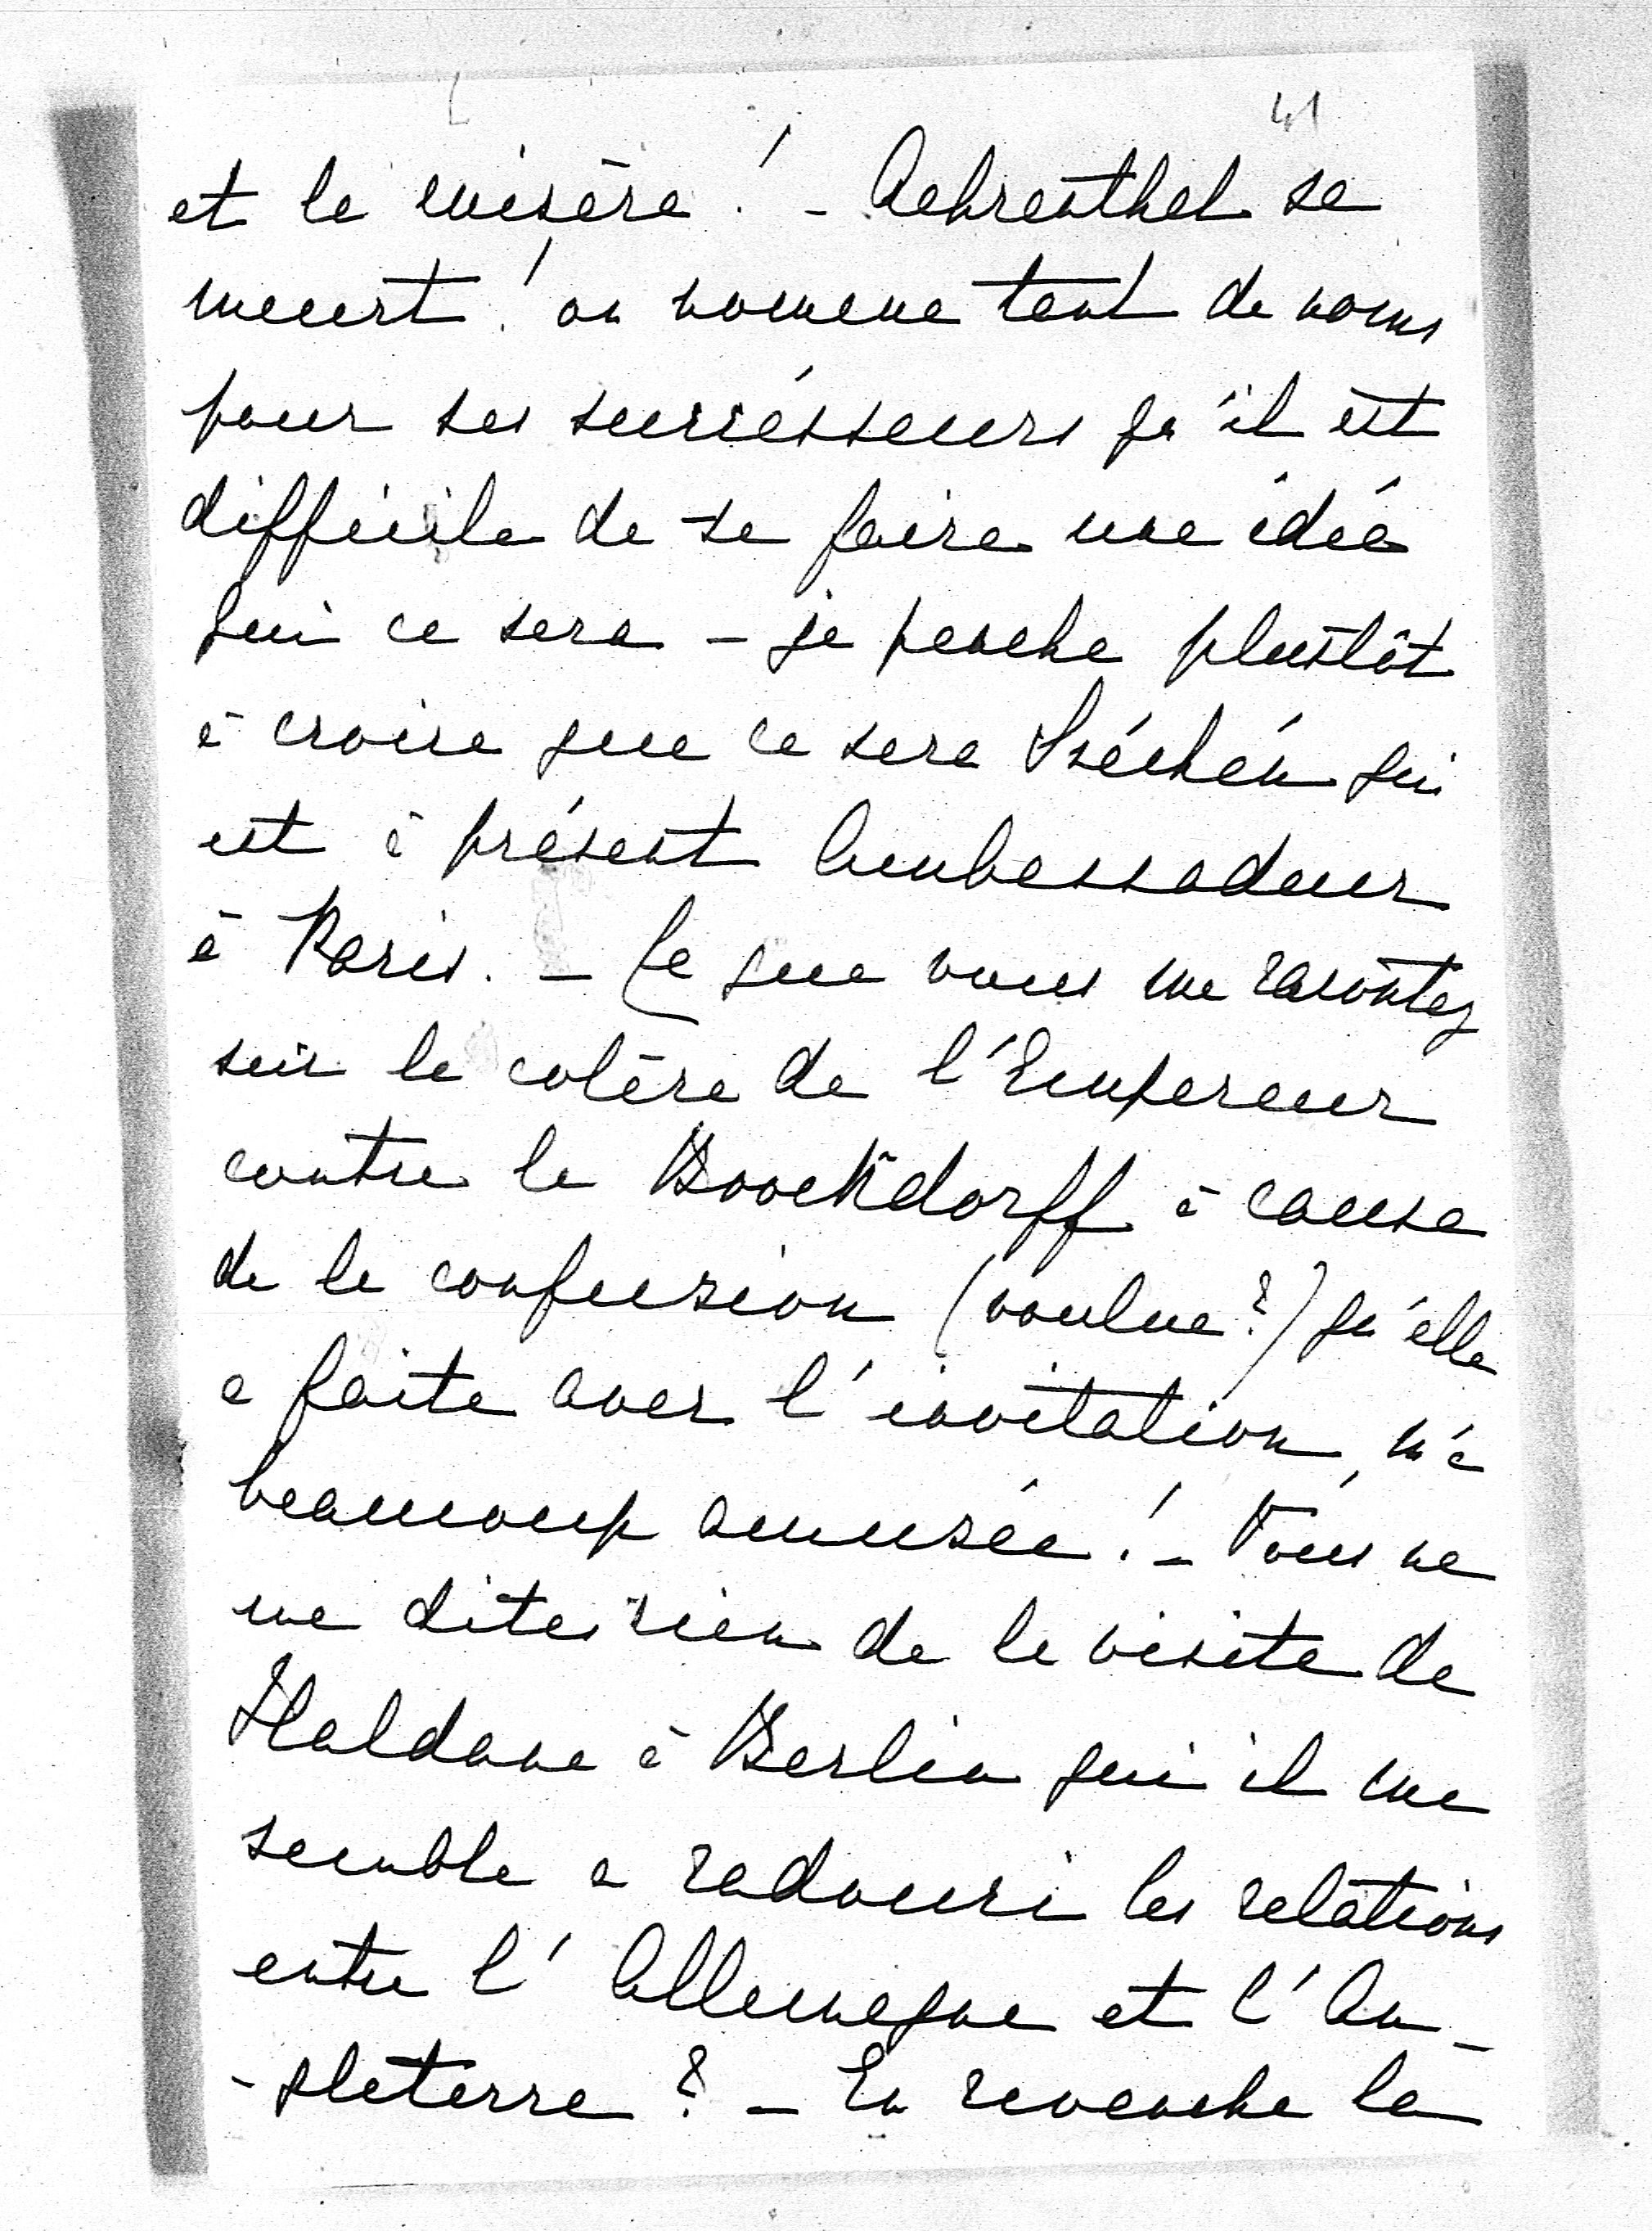 41
et la misère! - Aehrenthel se
meurt! on nomme tant de noms
pour ses succésseurs qu'il est
difficile de se faire une idée
qui ce sera - je penche plustôt
à croire que ce sera Széchén qui
est à présent Ambassadeur
à Paris. - Ce que vous me racontez
sur la colère de l'Empereur
contre la Broockdorff à cause
de la confusion (voulue?) qu'elle
a faite avec l'invitation, m'a
beaucoup amusée! - Vous ne
me dites rien de la visite de
Haldane à Berlin qui il me
semble a radouci les relations
entre l'Allemagne et l'An-
-gleterre? - En revanche la